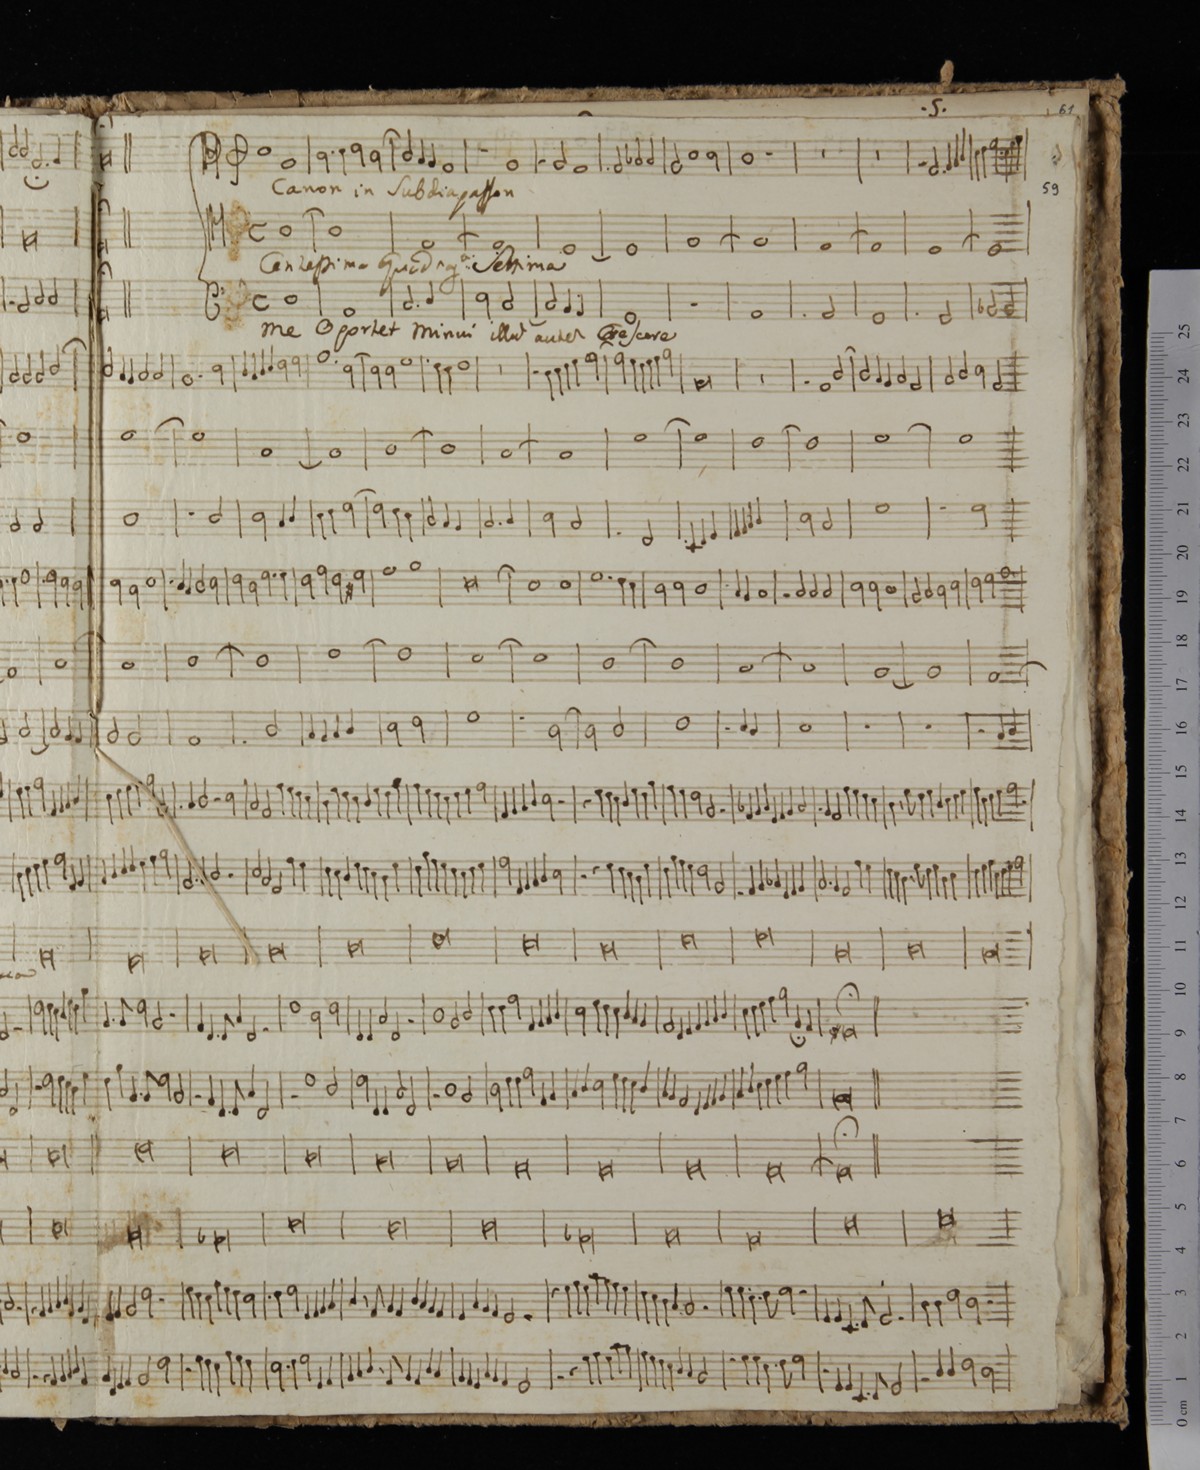 .5.
61
59
Canon in Subdiapasson
Centessima Quadrag.ª Settima
me Oportet minui illud autem Crescere
25
24
23
22
21
20
19
18
17
16
15
14
13
12
11
10
9
8
7
6
5
4
3
2
1
0 cm